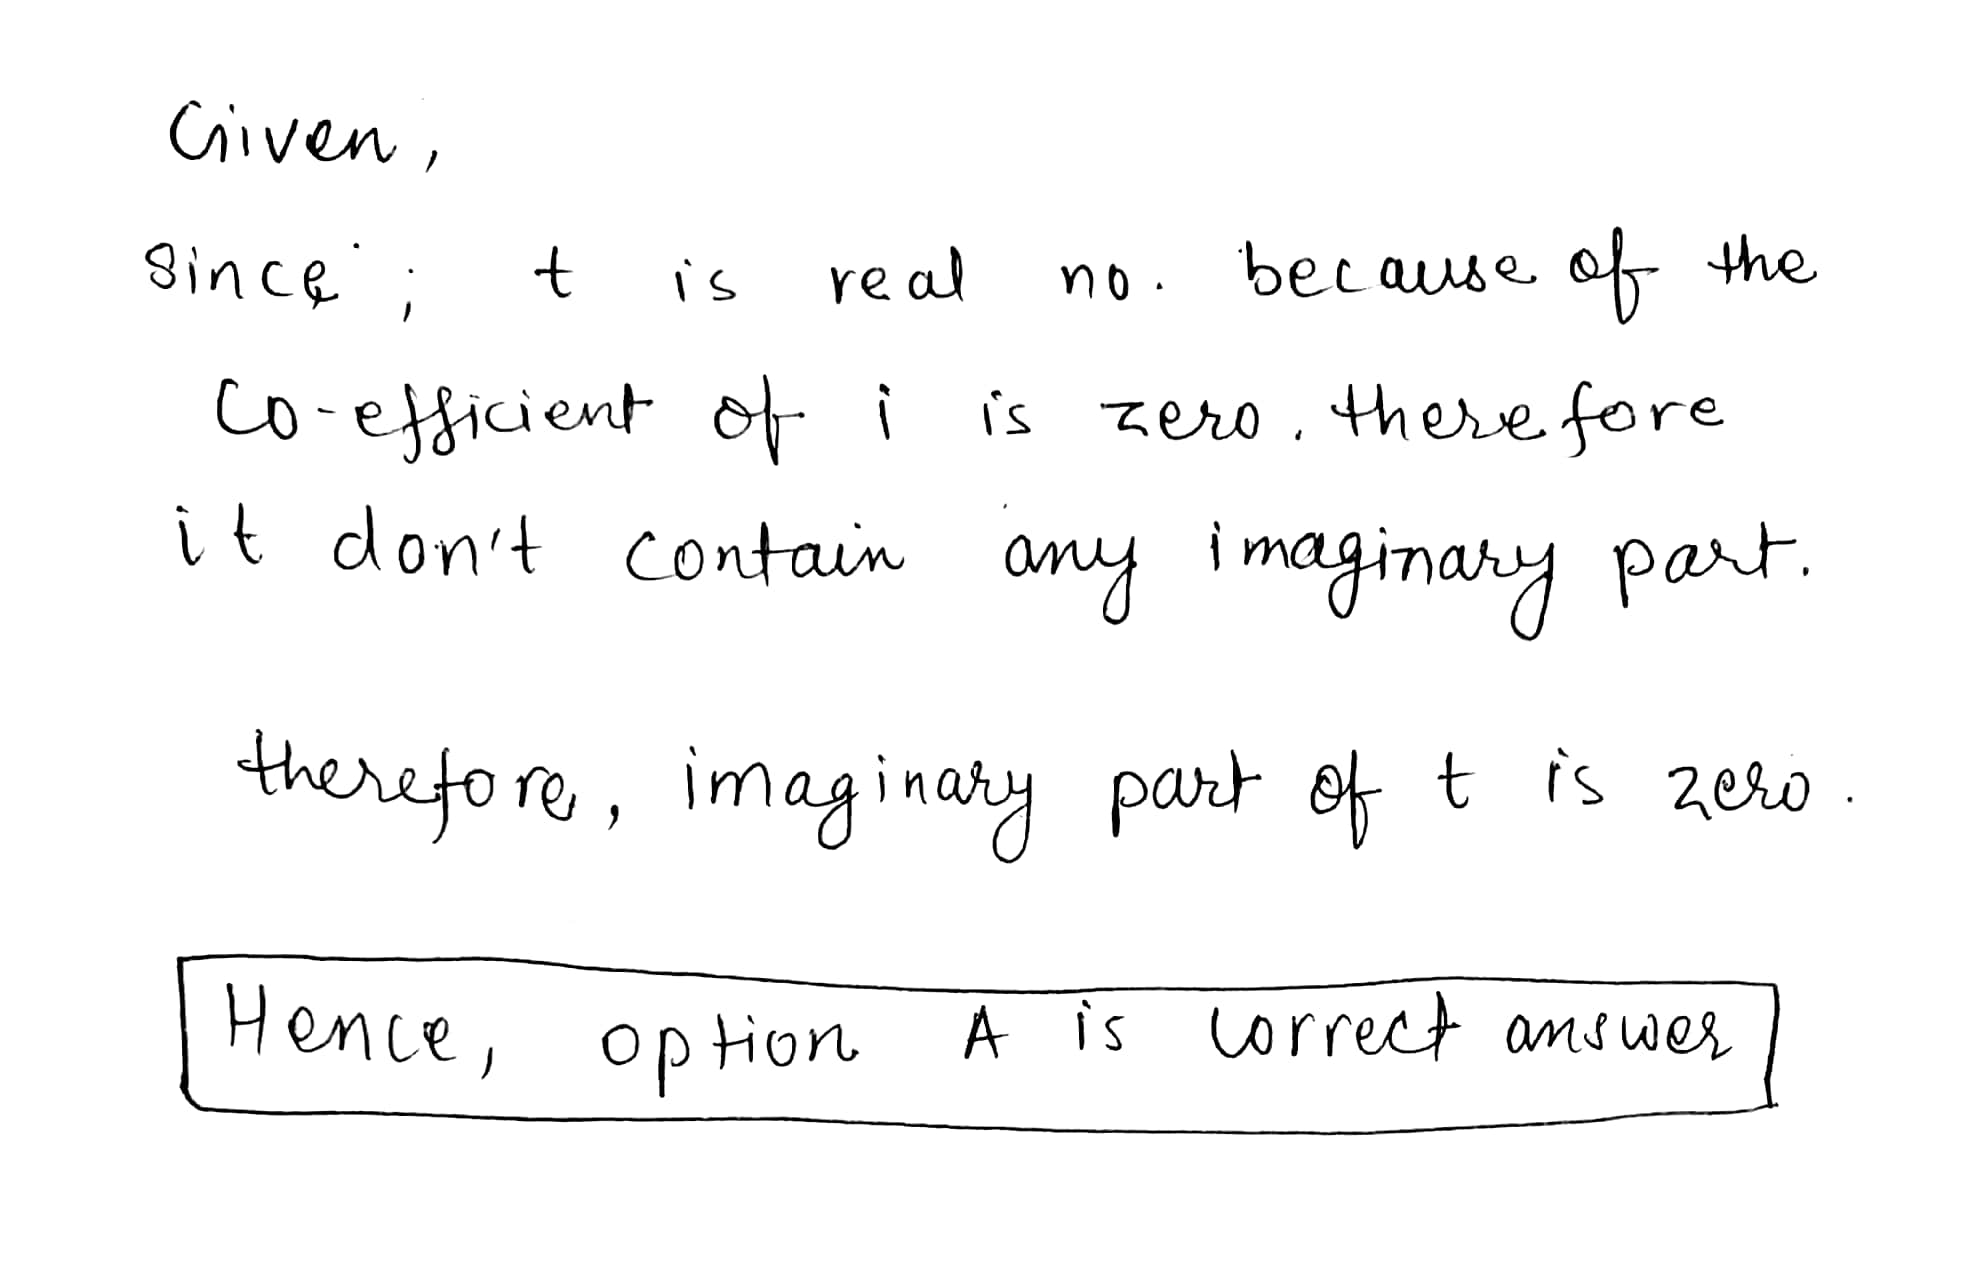 Given,
Since ; t is real no. because of the
Co-efficient of i is zero. therefore
it don't contain any imaginary part.
therefore, imaginary part of t is zero.
Hence, option A is correct answer